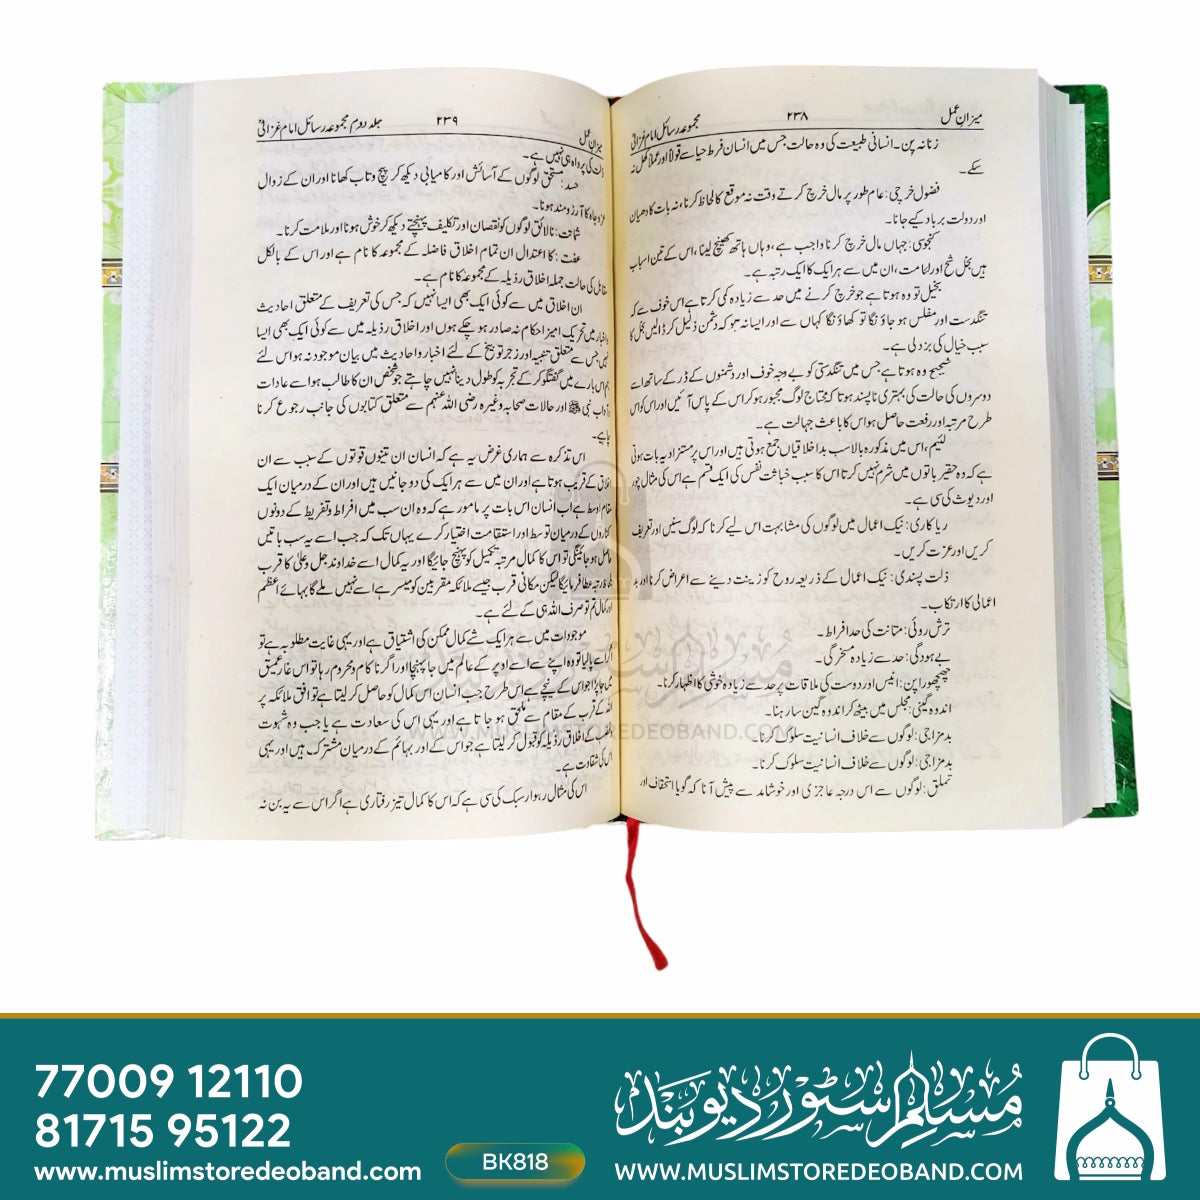 میزانِ عمل ۲۳۸ مجموعہ رسائل امام غزالیؒ
زنانہ پن۔ انسانی طبیعت کی وہ حالت جس میں انسان فرط حیا سے قولاً اور عملاً کھل نہ
سکے۔
فضول خرچی: عام طور پر مال خرچ کرتے وقت نہ موقع کا لحاظ کرنا، نہ بات کا دھیان
اور دولت برباد کیے جانا۔
کنجوسی: جہاں مال خرچ کرنا واجب ہے، وہاں ہاتھ کھینچ لینا، اس کے تین اسباب
ہیں بخل شح اور لئامت، ان میں سے ہر ایک کا ایک رتبہ ہے۔
بخیل تو وہ ہوتا ہے جو خرچ کرنے میں حد سے زیادہ کمی کرتا ہے اس خوف سے کہ
تنگدست اور مفلس ہو جاؤنگا تو کھاؤنگا کہاں سے اور ایسا نہ ہو کہ دشمن ذلیل کر ڈالیں بخل کا
سبب خیال کی بزدلی ہے۔
شحیح وہ ہوتا ہے جس میں تنگدستی کو بے وجہ خوف اور دشمنوں کے ڈر کے ساتھ اسے
دوسروں کی حالت کی بہتری ناپسند ہوتا کہ محتاج لوگ مجبور ہو کر اس کے پاس آئیں اور اس کو اس
طرح مرتبہ اور رفعت حاصل ہو اس کا باعث جہالت ہے۔
لئیم، اس میں مذکورہ بالا سب بد اخلاقیاں جمع ہوتی ہیں اور اس پر مستزاد یہ بات ہوتی
ہے کہ وہ حقیر باتوں میں شرم نہیں کرتا اس کا سبب خباثت نفس کی ایک قسم ہے اس کی مثال چور
اور دیوث کی سی ہے۔
ریا کاری: نیک اعمال میں لوگوں کی مشابہت اس لیے کرنا کہ لوگ سنیں اور تعریف
کریں اور عزت کریں۔
ذلت پسندی: نیک اعمال کے ذریعہ روح کو زینت دینے سے اعراض کرنا اور بد
اعمالی کا ارتکاب۔
ترش روئی: متانت کی حد افراط۔
بے ہودگی: حد سے زیادہ مسخرگی۔
چھچھورا پن: انیس اور دوست کی ملاقات پر حد سے زیادہ خوشی کا اظہار کرنا۔
اندوہ گینی: مجلس میں بیٹھ کر اندوہ گین سا رہنا۔
بدمزاجی: لوگوں سے خلاف انسانیت سلوک کرنا۔
بدمزاجی: لوگوں سے خلاف انسانیت سلوک کرنا۔
تملق: لوگوں سے اس درجہ عاجزی اور خوشامد سے پیش آنا کہ گویا استخفاف اور
میزانِ عمل ۲۳۹ جلد دوم مجموعہ رسائل امام غزالیؒ
ذلت کی پرواہ ہی نہیں ہے۔
حسد: مستحق لوگوں کے آسائش اور کامیابی دیکھ کر پیچ و تاب کھانا اور ان کے زوال
عزو جاہ کا آرزومند ہونا۔
شماتت: نالائق لوگوں کو نقصان اور تکلیف پہنچتے دیکھ کر خوش ہونا اور ملامت کرنا۔
عفت: کا اعتدال ان تمام اخلاق فاضلہ کے مجموعہ کا نام ہے اور اس کے بالکل
مقابل کی حالت جملہ اخلاق رذیلہ کے مجموعہ کا نام ہے۔
ان اخلاق میں سے کوئی ایک بھی ایسا نہیں کہ جس کی تعریف کے متعلق احادیث
واخبار میں تحریک امیز احکام نہ صادر ہو چکے ہوں اور اخلاق رذیلہ میں سے کوئی ایک بھی ایسا
نہیں جس سے متعلق تنبیہ اور زجر توبیخ کے لئے اخبار و احادیث میں بیان موجود نہ ہو اس لئے
ہم اس بارے میں گفتگو کر کے تجربہ کو طول دینا نہیں چاہتے جو شخص ان کا طالب ہو اسے عادات
و آداب نبی ﷺ اور حالات صحابہ وغیرہ رضی اللہ عنہم سے متعلق کتابوں کی جانب رجوع کرنا
چاہیے۔
اس تذکرہ سے ہماری غرض یہ ہے کہ انسان ان تینوں قوتوں کے سبب سے ان
اخلاق کے قریب ہوتا ہے اور ان میں سے ہر ایک کی دو جانبیں ہیں اور ان کے درمیان ایک
مقام اوسط ہے اب انسان اس بات پر مامور ہے کہ وہ ان سب میں افراط و تفریط کے دونوں
کناروں کے درمیان توسط اور استقامت اختیار کرے یہاں تک کہ جب اسے یہ سب باتیں
حاصل ہو جائینگی تو اس کا کمال مرتبہ تکمیل کو پہنچ جائیگا اور یہ کمال اسے خداوند جل وعلیٰ کا قرب
بلحاظ رتبہ عطا فرمائیگا لیکن مکانی قرب جیسے ملائکہ مقربین کو میسر ہے اسے نہیں ملے گا بہائے اعظم
اور کمال تم تو صرف اللہ ہی کے لئے ہے۔
موجودات میں سے ہر ایک شے کمال ممکن کی اشتیاق ہے اور یہی غایت مطلوبہ ہے تو
اگر اسے پا لیا تو وہ اپنے سے اوپر کے عالم میں جا پہنچا اور اگر ناکام و محروم رہا تو اس غار عمیق
میں جا پڑا جو اس کے نیچے ہے اس طرح جب انسان اس کمال کو حاصل کر لیتا ہے تو افق ملائکہ پر
اللہ کے قرب کے مقام سے ملحق ہو جاتا ہے اور یہی اس کی سعادت ہے یا جب وہ شہوت
کے اخلاق رذیلہ کو قبول کر لیتا ہے جو اس کے اور بہائم کے درمیان مشترک ہیں اور یہی
اس کی شقاوت ہے۔
اس کی مثال رہوار سبک کی سی ہے کہ اس کا کمال تیز رفتاری ہے اگر اس سے یہ بن نہ
مسلم سٹور دیوبند
WWW.MUSLIMSTOREDEOBAND.COM
77009 12110
81715 95122
www.muslimstoredeoband.com
BK818
مسلم سٹور دیوبند
WWW.MUSLIMSTOREDEOBAND.COM